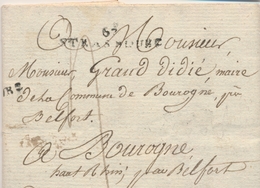 A Monsieur,
67
STRASBOURG
Monsieur Grand didié, maire
de la Commune de Bourogne près
Belfort.
A Bourogne
haut Rhin, par Belfort